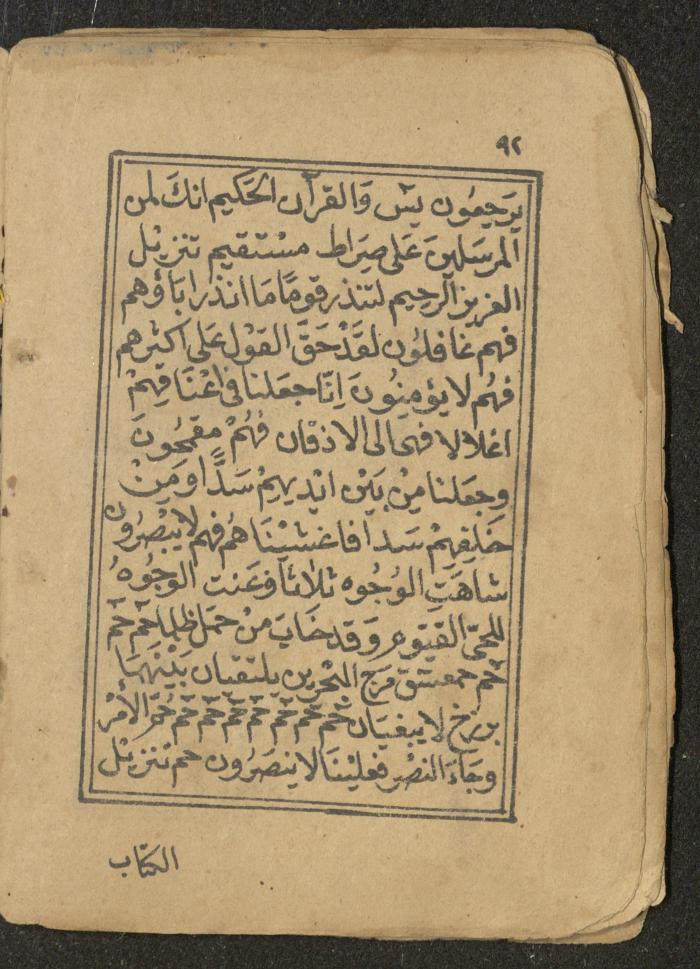 ٩٢
يرجعون يس وَالقرآن الحَكيم انكَ لمن
المرسَلينَ عَلى صِرَاط مسْتقيم تنزيْل
العزيز الرحيم لتنذر قومًا مَا انذر ابَاؤهم
فهم غافلوُن لقَدْ حَقَّ القوْل عَلى اكثرهم
فهُم لا يؤمِنوُنَ اِنّا جعَلنا فى اعْنَاقِهِمْ
اغلالا فهى الى الاذقان فهُمْ مقمحُونَ
وجعَلنا مِنْ بَيْن ايْديهِمْ سَدًّا ومِنْ
خلفِهمْ سَدا فاغشيْنَاهُم فهم لايبْصرُون
شاهَتِ الوُجُوه ثلاثا وَعَنت الوجُوهُ
للحىّ القيّوم وَقد خَابَ منْ حمَل ظلما حم حم
حم حمعسق مَرج البَحْرين يلتقيان بَيْنهمَا
برزخ لايبغيَان حم حم حم حم حم حم حم حُمَّ الأمْر
وجَاءَ النصْر فعليْنَا لا ينصَرُون حم تنزيْل
الكتاب